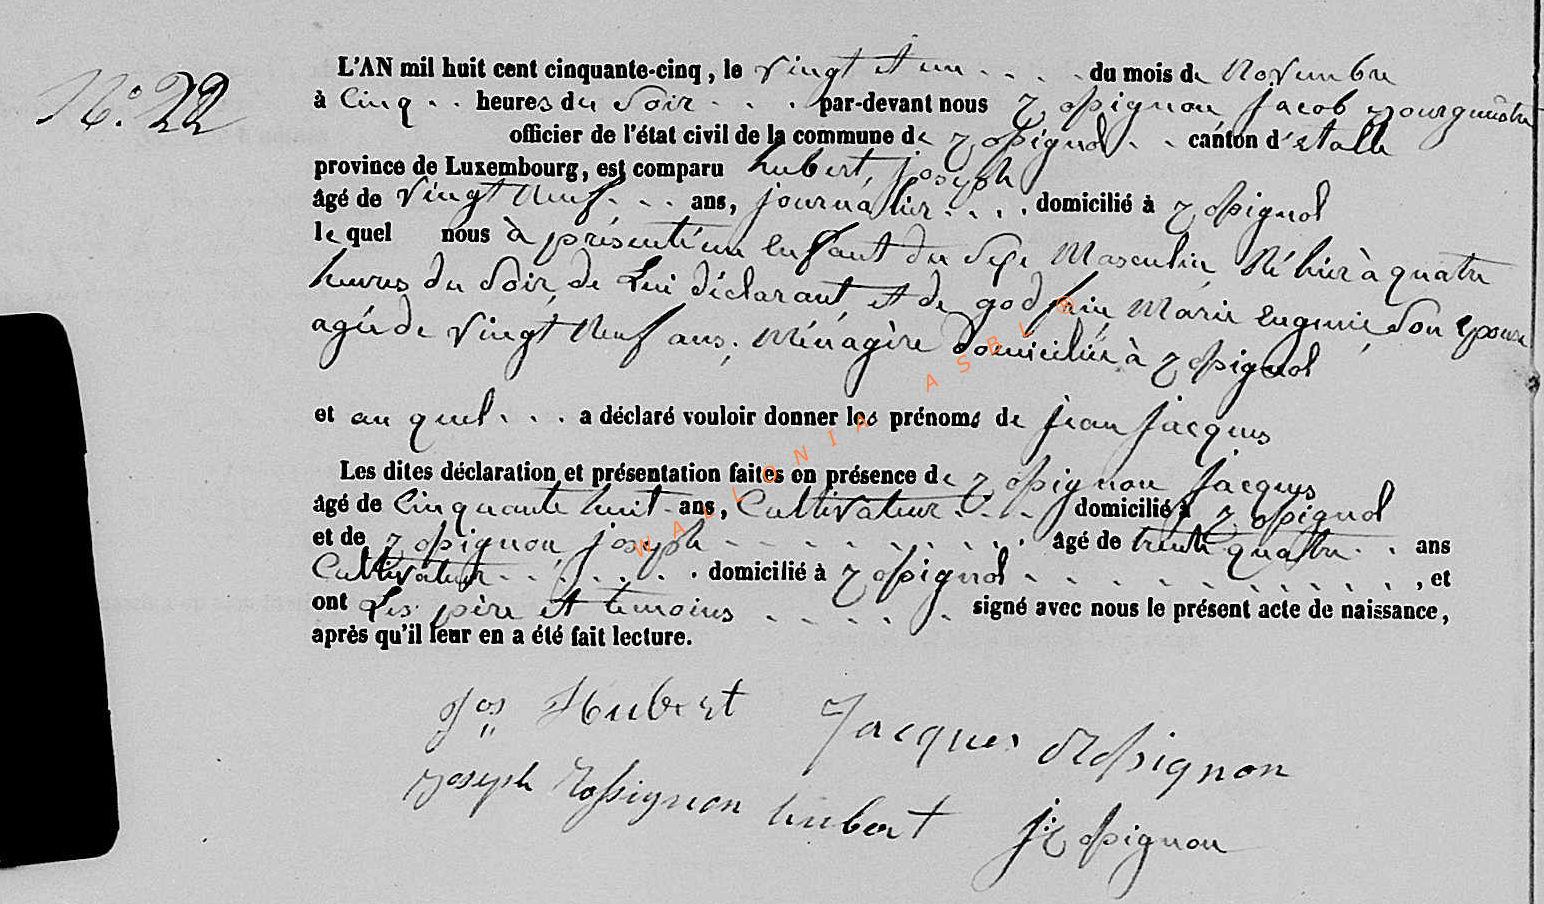 N.° 22
L'AN mil huit cent cinquante-cinq, le vingt et un . . . . du mois de Novembre
à Cinq . . heures du Soir . . . . par-devant nous Rossignon, Jacob Bourgmestre
officier de l'état civil de la commune de Rossignol . . canton d'etalle
province de Luxembourg, est comparu hubert, joseph
âgé de Vingt Neuf . . . ans, journalier . . . . domicilié à Rossignol
le quel nous à présenté un Enfant du Sexe Masculin, Né hier à quatre
heures du Soir, de Lui déclarant et de godfrin, Marie Eugenie, Son Epouse
agée de Vingt Neuf ans, Ménagère domiciliée à Rossignol
et au quel . . . a déclaré vouloir donner les prénoms de jean jacques
Les dites déclaration et présentation faites en présence de Rossignon Jacques
âgé de Cinquante huit ans, Cultivateur . . . . domicilié à Rossignol
et de Rossignon, joseph . . . . . . . . . . âgé de trente quatre . . ans
Cultivateur . . . . . . . domicilié à Rossignol . . . . . . . . . . . , et
ont Les père et temoins . . . . . signé avec nous le présent acte de naissance,
après qu'il leur en a été fait lecture.
Jos Hubert Jacques Rossignon
Joseph Rossignon hubert J: Rossignon
WALLONIA ASBL ©